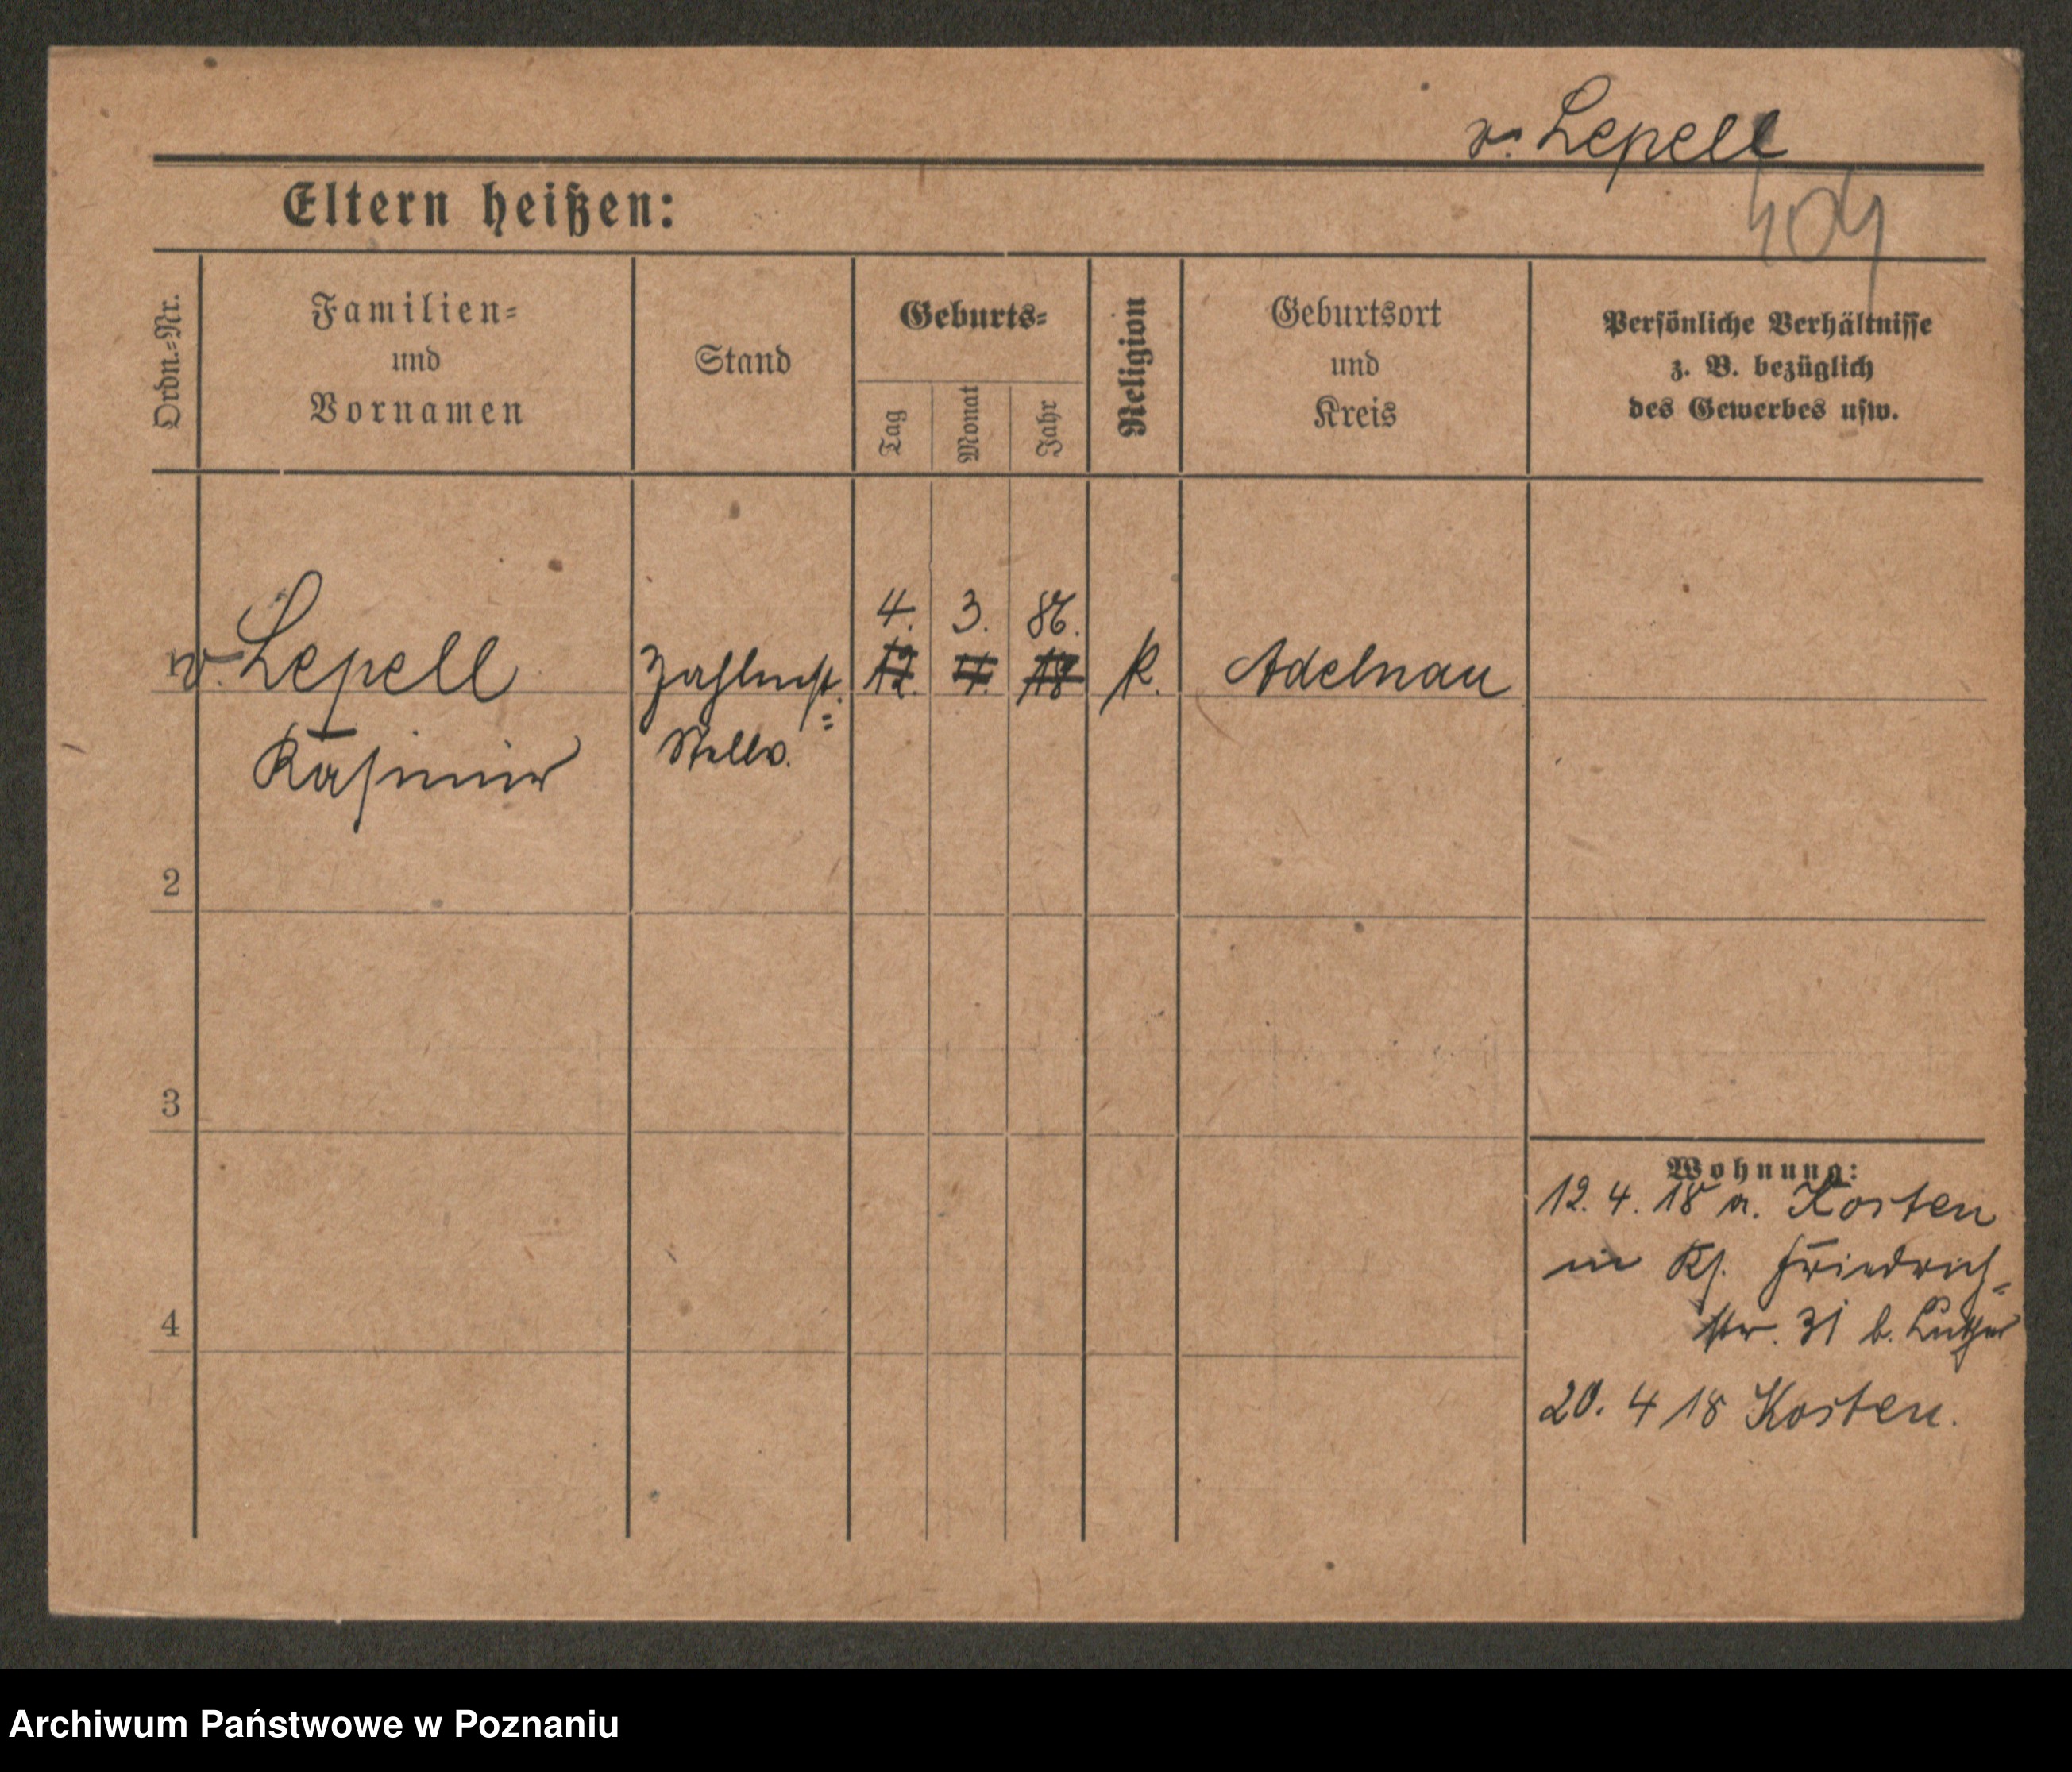 v. Lepell
Eltern heißen:
404
Ordn.-Nr.
Familien-
und
Vornamen
Stand
Geburts-
Tag
Monat
Jahr
Religion
Geburtsort
und
Kreis
Persönliche Verhältnisse
z. B. bezüglich
des Gewerbes usw.
4. 3. 86.
1 v. Lepell Zahlmst.= 12. 4. 18 k. Adelnau
Kasimir Stellv.
2
3
Wohnung:
12. 4. 18 a. Kosten
in Kf. Friedrich-
4
str. 31 b.
20. 4 18 Kosten.
Archiwum Państwowe w Poznaniu